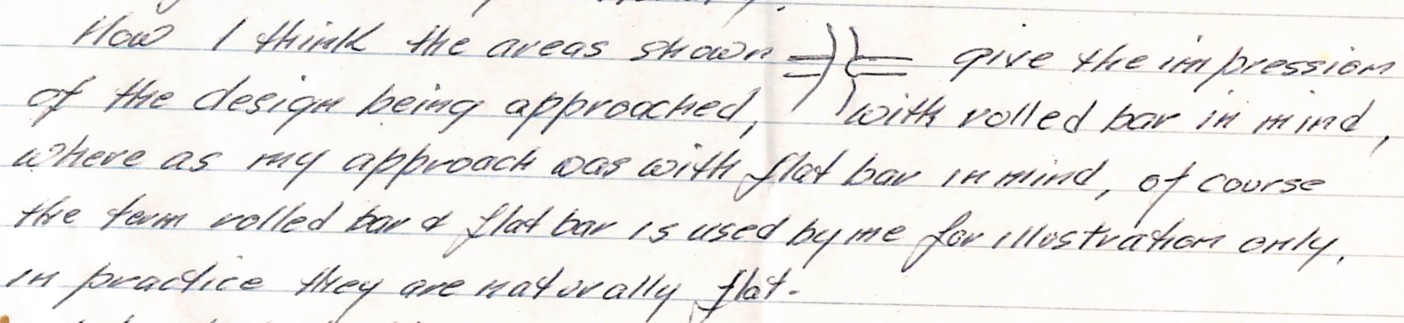 How I think the areas shown give the impression
of the design being approached, with rolled bar in mind,
where as my approach was with flat bar in mind, of course
the term rolled bar & flat bar is used by me for illustration only,
in practice they are naturally flat.